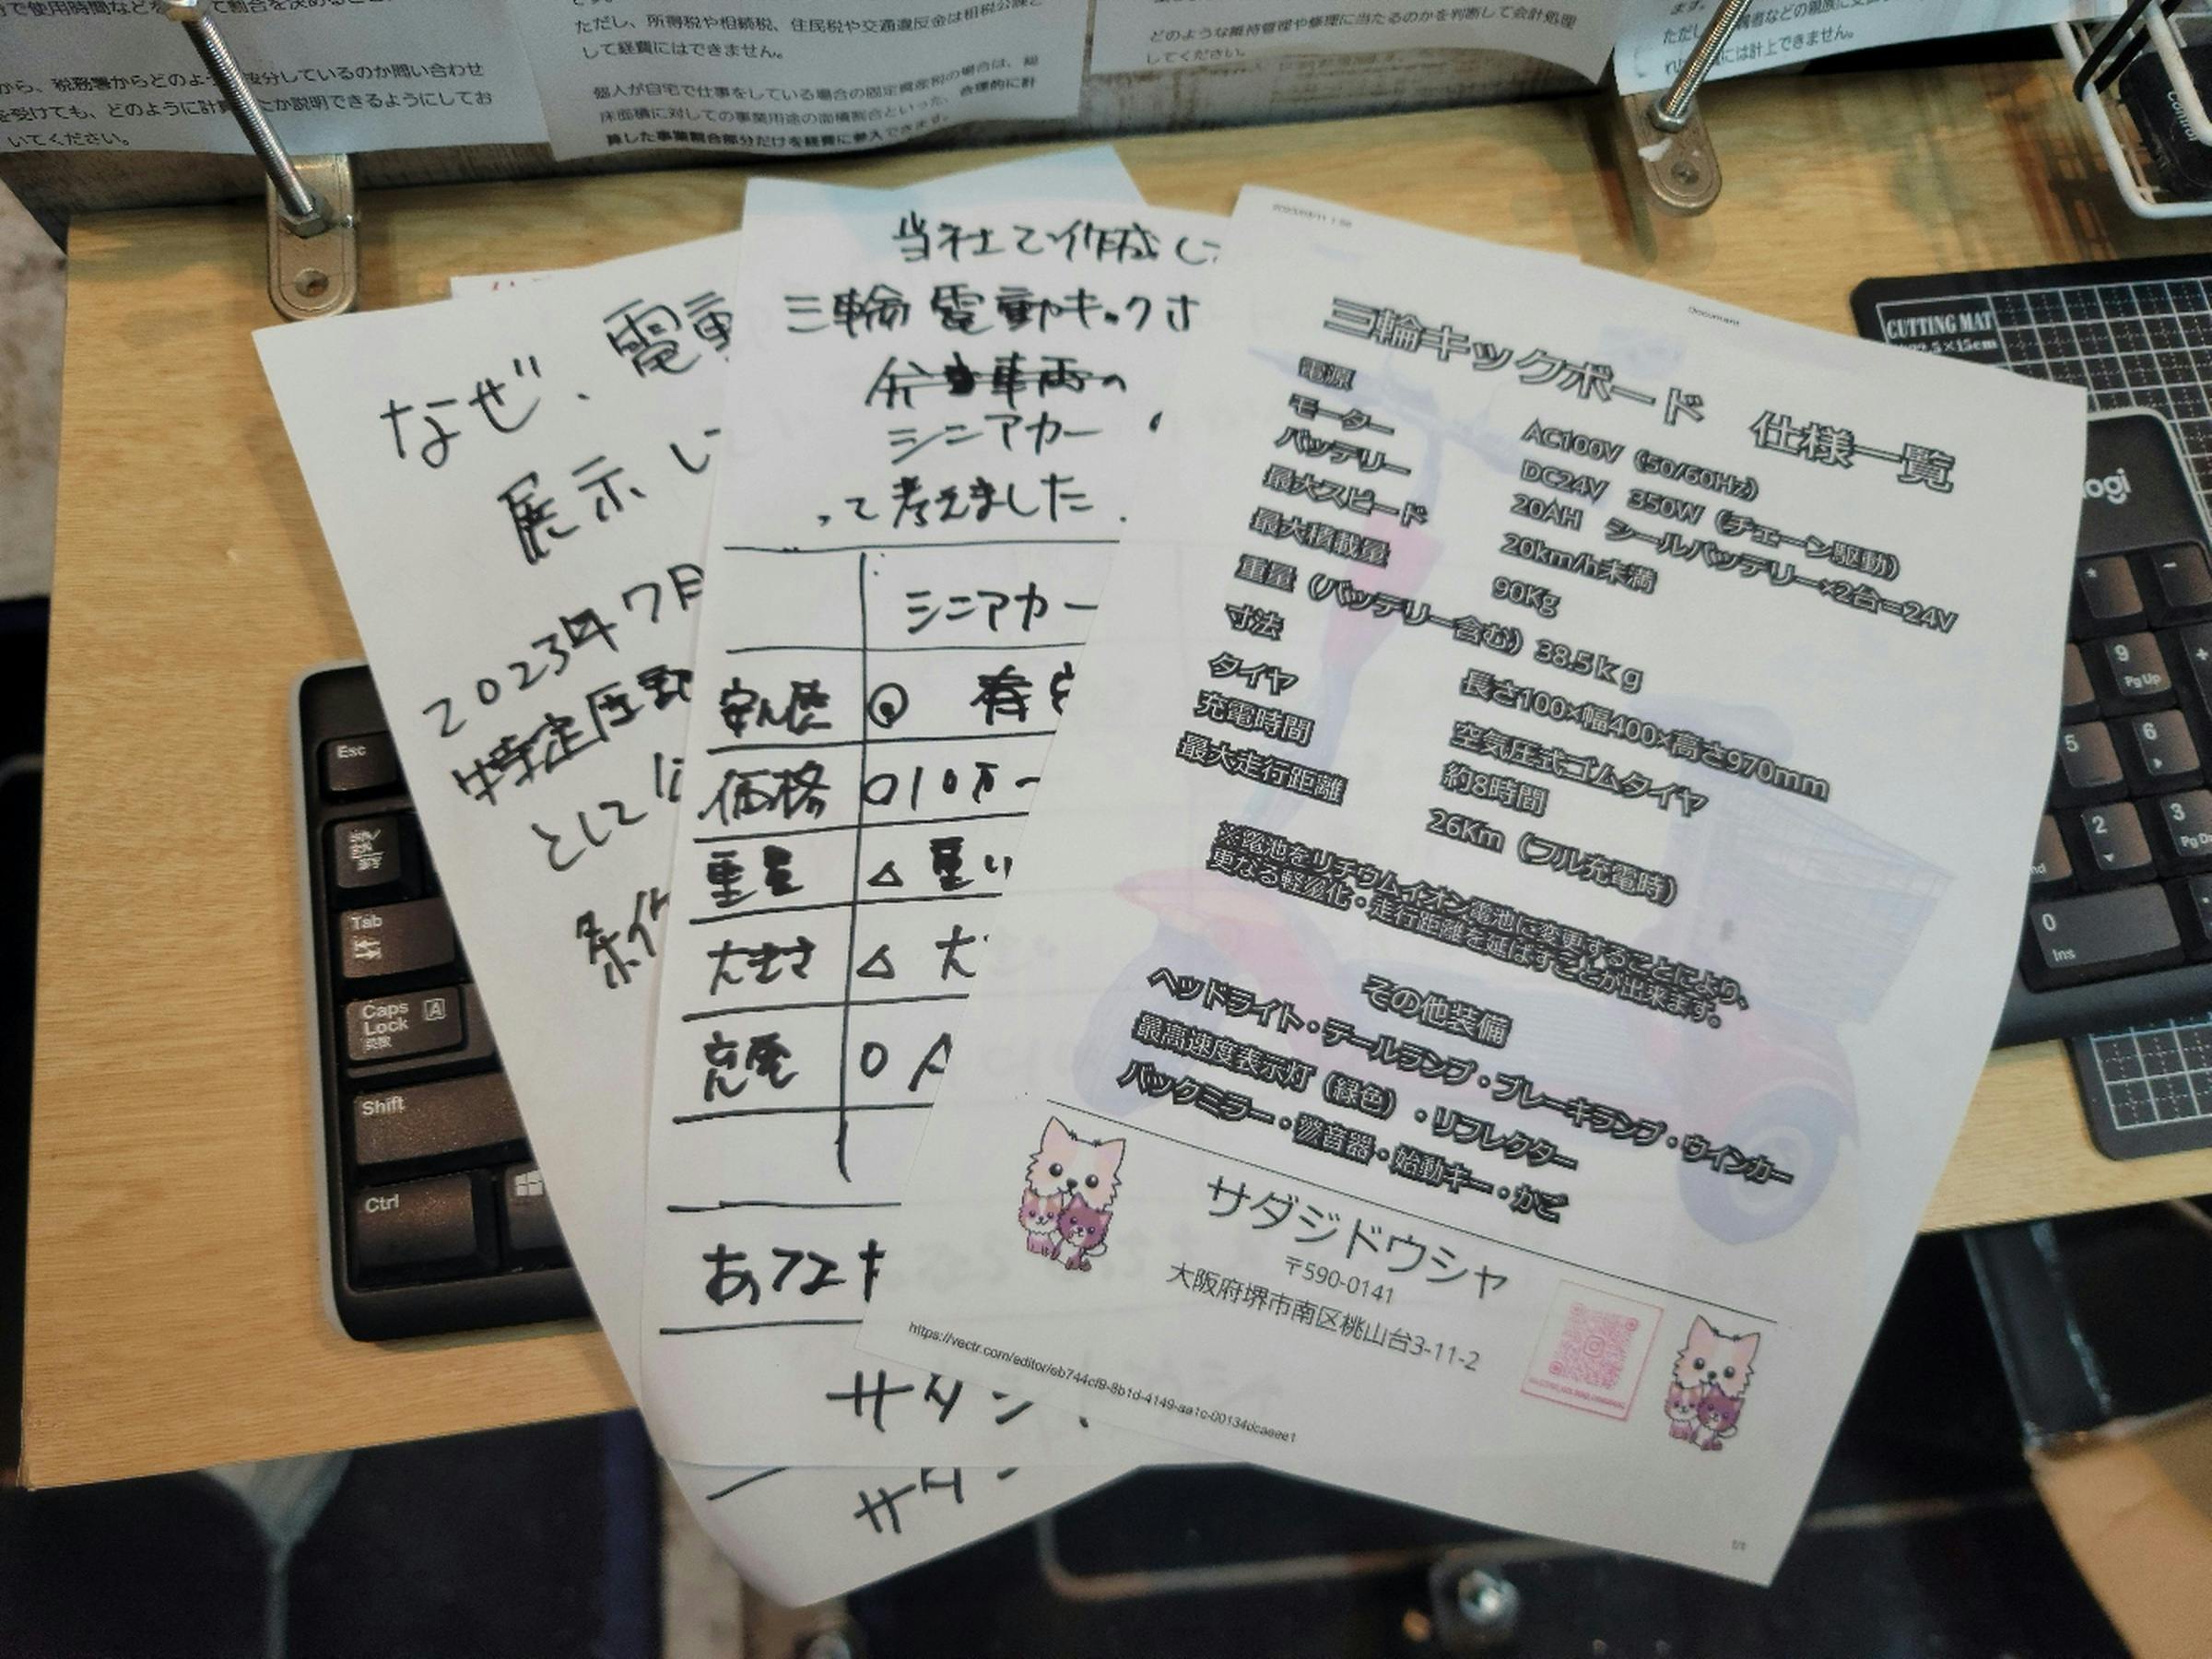 で使用時間などを
から、税務署からどのよう
按分しているのか問い合わせ
を受けても、どのように計算
たか説明できるようにしてお
いてください。
ただし、所得税や相続税、住民税や交通違反金は租税公課と
して経費にはできません。
個人が自宅で仕事をしている場合の固定資産税の場合は、総
床面積に対しての事業用途の面積割合といった、合理的に計
算した事業割合部分だけを経費に参入できます。
どのような維持管理や修理に当たるのかを判断して会計処理
してください。
ます。
には計上できません。
なぜ、電動
展示し
2023年7月
特定原動
として
条件
当社で作成し
三輪電動キック
シニアカー
って考えました
シニアカー
安全性 ◎
価格 ○10万~
重量 △重い
大きさ △大
充電 ○A
あなた
サダジ
サダジ
Document
三輪キックボード 仕様一覧
電源 AC100V(50/60Hz)
モーター DC24V 350W(チェーン駆動)
バッテリー 20AH シールバッテリー×2台=24V
最大スピード 20km/h未満
最大積載量 90Kg
重量(バッテリー含む)38.5kg
寸法 長さ100×幅400×高さ970mm
タイヤ 空気圧式ゴムタイヤ
充電時間 約8時間
最大走行距離 26Km(フル充電時)
※電池をリチウムイオン電池に変更することにより、
更なる軽量化・走行距離を延ばすことが出来ます。
その他装備
ヘッドライト・テールランプ・ブレーキランプ・ウインカー
最高速度表示灯(緑色)・リフレクター
バックミラー・警音器・始動キー・かご
サダジドウシャ
〒590-0141
大阪府堺市南区桃山台3-11-2
https://vectr.com/editor/eb744cf9-8b1d-4149-aa1c-00134dcaeee1
1/1
CUTTING MAT
22.5×15cm
logi
Esc
Tab
Caps Lock A
英数
Shift
Ctrl
* -
9 PgUp +
5 6
2 3 PgDn
0 Ins